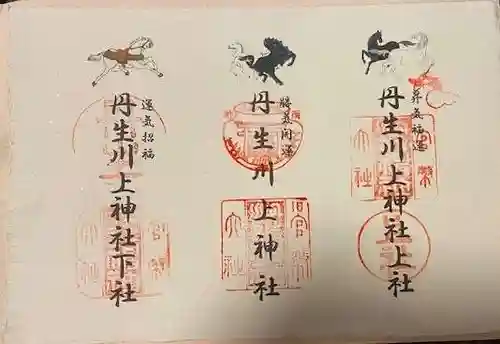 昇氣福運
丹生川上神社上社
勝氣開運
丹生川上神社
運氣招福
丹生川上神社下社